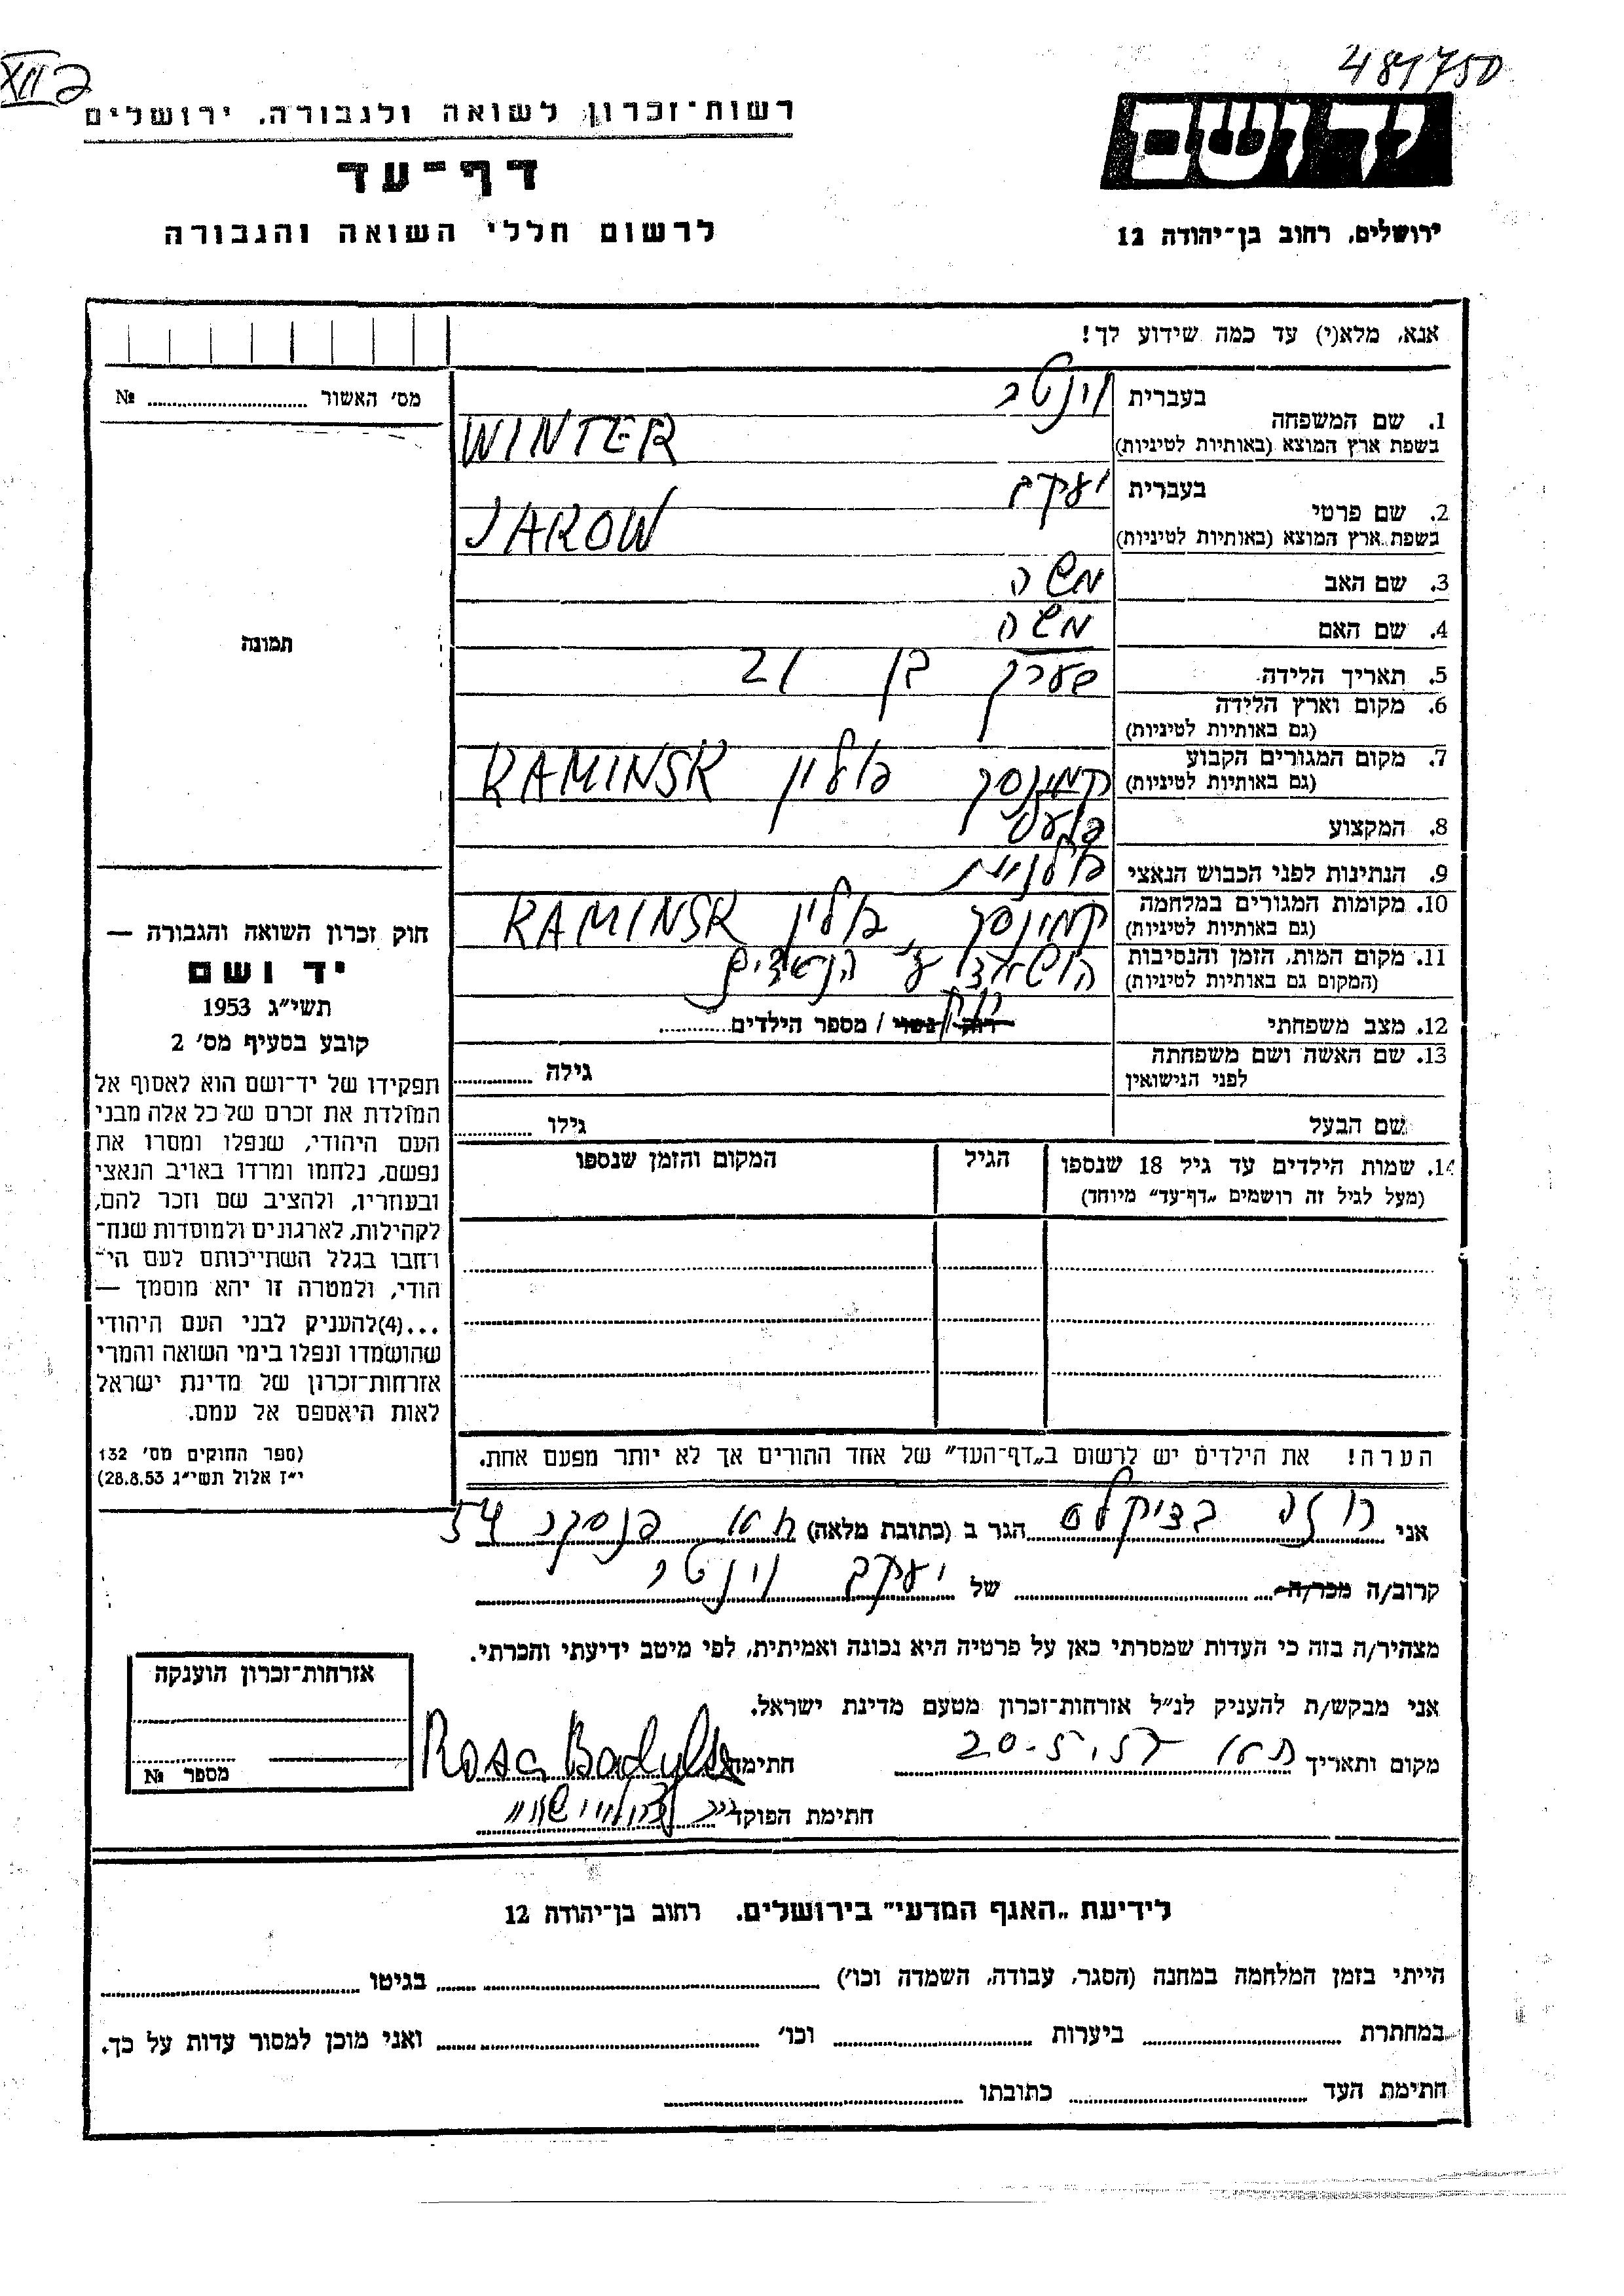 481750
XII ב
יד ושם
רשות־זכרון לשואה ולגבורה, ירושלים
דף־עד
ירושלים, רחוב בן־יהודה 12
לרשום חללי השואה והגבורה
אנא, מלא(י) עד כמה שידוע לך!
מס׳ האשור № ..........
1. שם המשפחה
בעברית וינטר
בשפת ארץ המוצא (באותיות לטיניות) WINTER
2. שם פרטי
בעברית יעקב
בשפת ארץ המוצא (באותיות לטיניות) JAROW
3. שם האב משה
4. שם האם משה
5. תאריך הלידה בערך בן 21
6. מקום וארץ הלידה
(גם באותיות לטיניות)
7. מקום המגורים הקבוע
(גם באותיות לטיניות) קמינסק פולין KAMINSK
8. המקצוע
9. הנתינות לפני הכבוש הנאצי פולנית
10. מקומות המגורים במלחמה
(גם באותיות לטיניות) קמינסק, פולין KAMINSK
11. מקום המות, הזמן והנסיבות
(המקום גם באותיות לטיניות) הנאצים
12. מצב משפחתי רוק / נשוי / מספר הילדים .......... רוק
13. שם האשה ושם משפחתה
לפני הנישואין גילה ..........
שם הבעל גילו ..........
14. שמות הילדים עד גיל 18 שנספו
(מעל לגיל זה רושמים „דף־עד” מיוחד)
הגיל
המקום והזמן שנספו
הערה! את הילדים יש לרשום ב„דף־העד” של אחד ההורים אך לא יותר מפעם אחת.
תמונה
חוק זכרון השואה והגבורה —
יד ושם
תשי״ג 1953
קובע בסעיף מס׳ 2
תפקידו של יד־ושם הוא לאסוף אל
המולדת את זכרם של כל אלה מבני
העם היהודי, שנפלו ומסרו את
נפשם, נלחמו ומרדו באויב הנאצי
ובעוזריו, ולהציב שם וזכר להם,
לקהילות, לארגונים ולמוסדות שנח־
רחבו בגלל השתייכותם לעם הי־
הודי, ולמטרה זו יהא מוסמך —
...(4)להעניק לבני העם היהודי
שהושמדו ונפלו בימי השואה והמרי
אזרחות־זכרון של מדינת ישראל
לאות היאספם אל עמם.
(ספר החוקים מס׳ 132
י״ז אלול תשי״ג 28.8.53)
אני רוזה הגר ב (כתובת מלאה) 54
קרוב/ה מכר/ה של יעקב וינטר
מצהיר/ה בזה כי העדות שמסרתי כאן על פרטיה היא נכונה ואמיתית, לפי מיטב ידיעתי והכרתי.
אני מבקש/ת להעניק לנ״ל אזרחות־זכרון מטעם מדינת ישראל.
מקום ותאריך 20.5.57 חתימה Rosa
חתימת הפוקד
אזרחות־זכרון הוענקה
מספר №
לידיעת „האגף המדעי” בירושלים. רחוב בן־יהודה 12
הייתי בזמן המלחמה במחנה (הסגר, עבודה, השמדה וכו׳) .......... בגיטו ..........
במחתרת .......... ביערות .......... וכו׳ .......... ואני מוכן למסור עדות על כך.
חתימת העד .......... כתובתו ..........